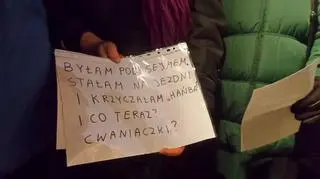 BYŁAM POD SEJMEM.
STAŁAM NA JEZDNI
I KRZYCZAŁAM „HAŃBA
I CO TERAZ?
CWANIACZKI?